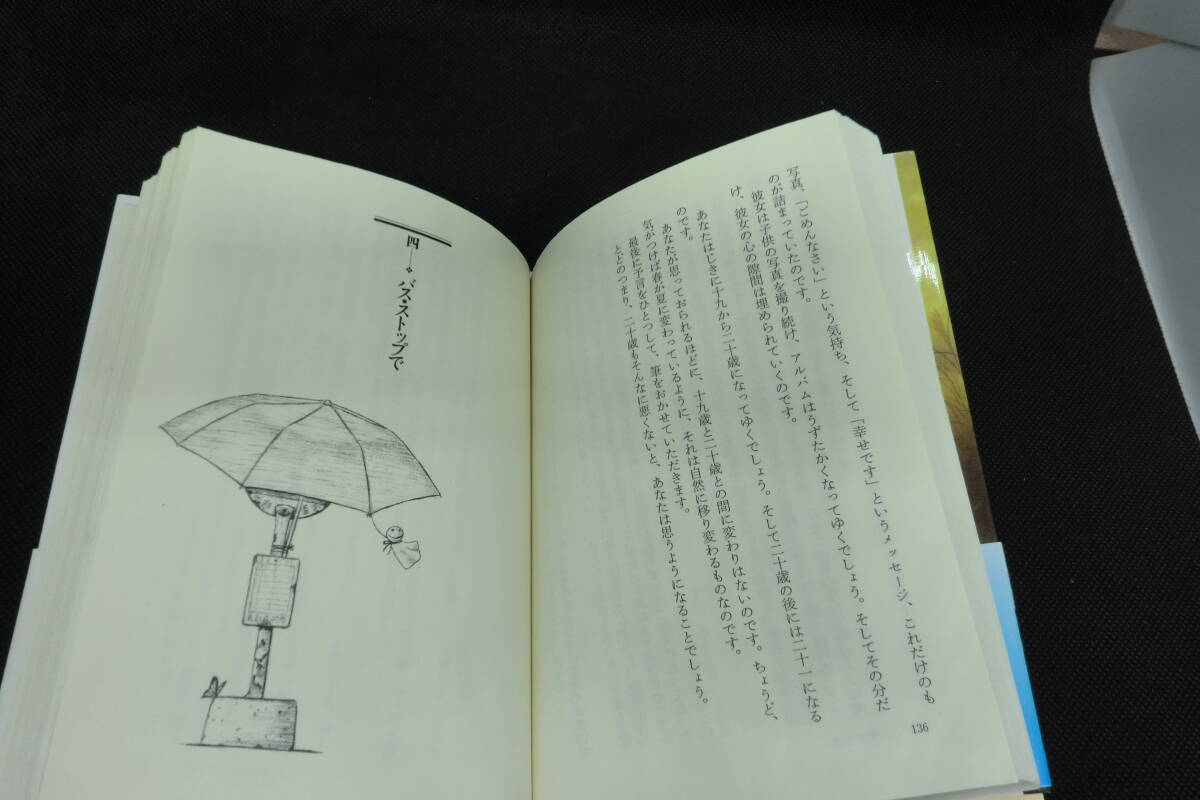 写真、「ごめんなさい」という気持ち、そして「幸せです」というメッセージ、これだけのも
のが詰まっていたのです。
彼女は子供の写真を撮り続け、アルバムはうずたかくなってゆくでしょう。そしてその分だ
け、彼女の心の隙間は埋められていくのです。
あなたはじきに十九から二十歳になってゆくでしょう。そして二十歳の後には二十一になる
のです。
あなたが思っておられるほどに、十九歳と二十歳との間に変わりはないのです。ちょうど、
気がつけば春が夏に変わっているように、それは自然に移り変わるものなのです。
最後に予言をひとつして、筆をおかせていただきます。
とどのつまり、二十歳もそんなに悪くないと、あなたは思うようになることでしょう。
136
四 バス・ストップで